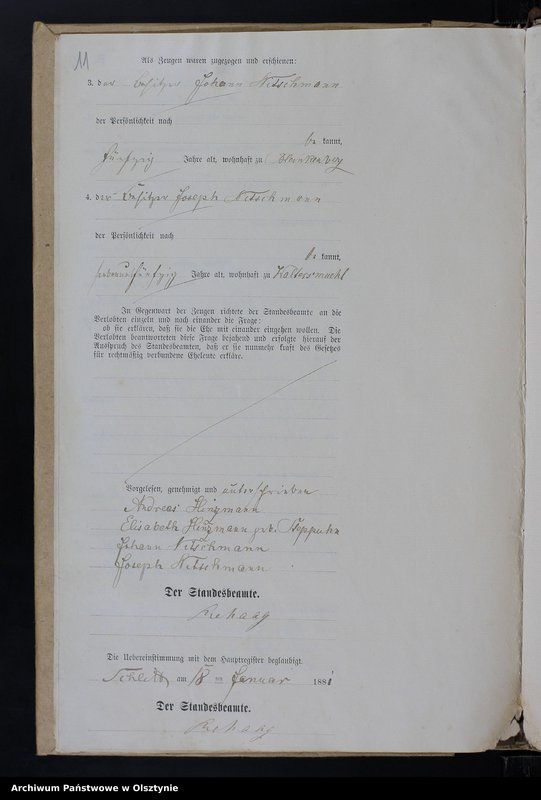 11
Als Zeugen waren zugezogen und erschienen:
3. der Besitzer Johann Nitschmann
der Persönlichkeit nach
be kannt,
fünfzig Jahre alt, wohnhaft zu Blankenberg
4. der Besitzer Joseph Nitschmann
der Persönlichkeit nach
be kannt,
siebenundfünfzig Jahre alt, wohnhaft zu
In Gegenwart der Zeugen richtete der Standesbeamte an die
Verlobten einzeln und nach einander die Frage:
ob sie erklären, daß sie die Ehe mit einander eingehen wollen. Die
Verlobten beantworteten diese Frage bejahend und erfolgte hierauf der
Ausspruch des Standesbeamten, daß er sie nunmehr kraft des Gesetzes
für rechtmäßig verbundene Eheleute erkläre.
Vorgelesen, genehmigt und unterschrieben
Andreas Hinzmann
Elisabeth Hinzmann geb.
Johann Nitschmann
Joseph Nitschmann
Der Standesbeamte.
Rehaag
Die Uebereinstimmung mit dem Hauptregister beglaubigt.
am 18 ten Januar 1881
Der Standesbeamte.
Rehaag
Archiwum Państwowe w Olsztynie